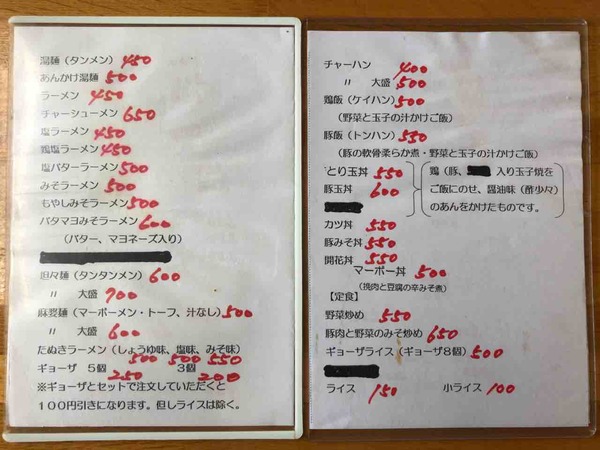 湯麺（タンメン）450
あんかけ湯麺 500
ラーメン 450
チャーシューメン 650
塩ラーメン 450
鶏塩ラーメン 450
塩バターラーメン 500
みそラーメン 500
もやしみそラーメン 500
バタマヨみそラーメン 600
（バター、マヨネーズ入り）
坦々麺（タンタンメン）600
〃 大盛 700
麻婆麺（マーボーメン・トーフ、汁なし）500
〃 大盛 600
たぬきラーメン（しょうゆ味、塩味、みそ味）
500 500 550
ギョーザ 5個 250 3個 200
※ギョーザとセットで注文していただくと
100円引きになります。但しライスは除く。
チャーハン 400
〃 大盛 500
鶏飯（ケイハン）500
（野菜と玉子の汁かけご飯）
豚飯（トンハン）550
（豚の軟骨柔らか煮・野菜と玉子の汁かけご飯）
とり玉丼 550
豚玉丼 600
鶏（豚、 入り玉子焼を
ご飯にのせ、醤油味（酢少々）
のあんをかけたものです。
カツ丼 550
豚みそ丼 550
開花丼 550
マーボー丼 500
（挽肉と豆腐の辛みそ煮）
【定食】
野菜炒め 550
豚肉と野菜のみそ炒め 650
ギョーザライス（ギョーザ8個）500
ライス 150 小ライス 100